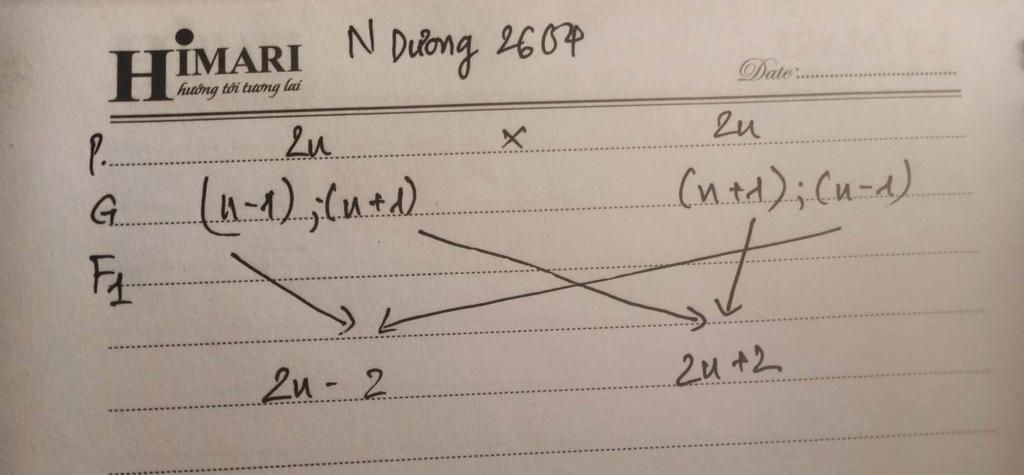 HIMARI
hướng tới tương lai
N Dương 2604
Date:
P. 2n × 2n
G (n-1) ; (n+1) (n+1) ; (n-1)
F1
2n - 2 2n + 2